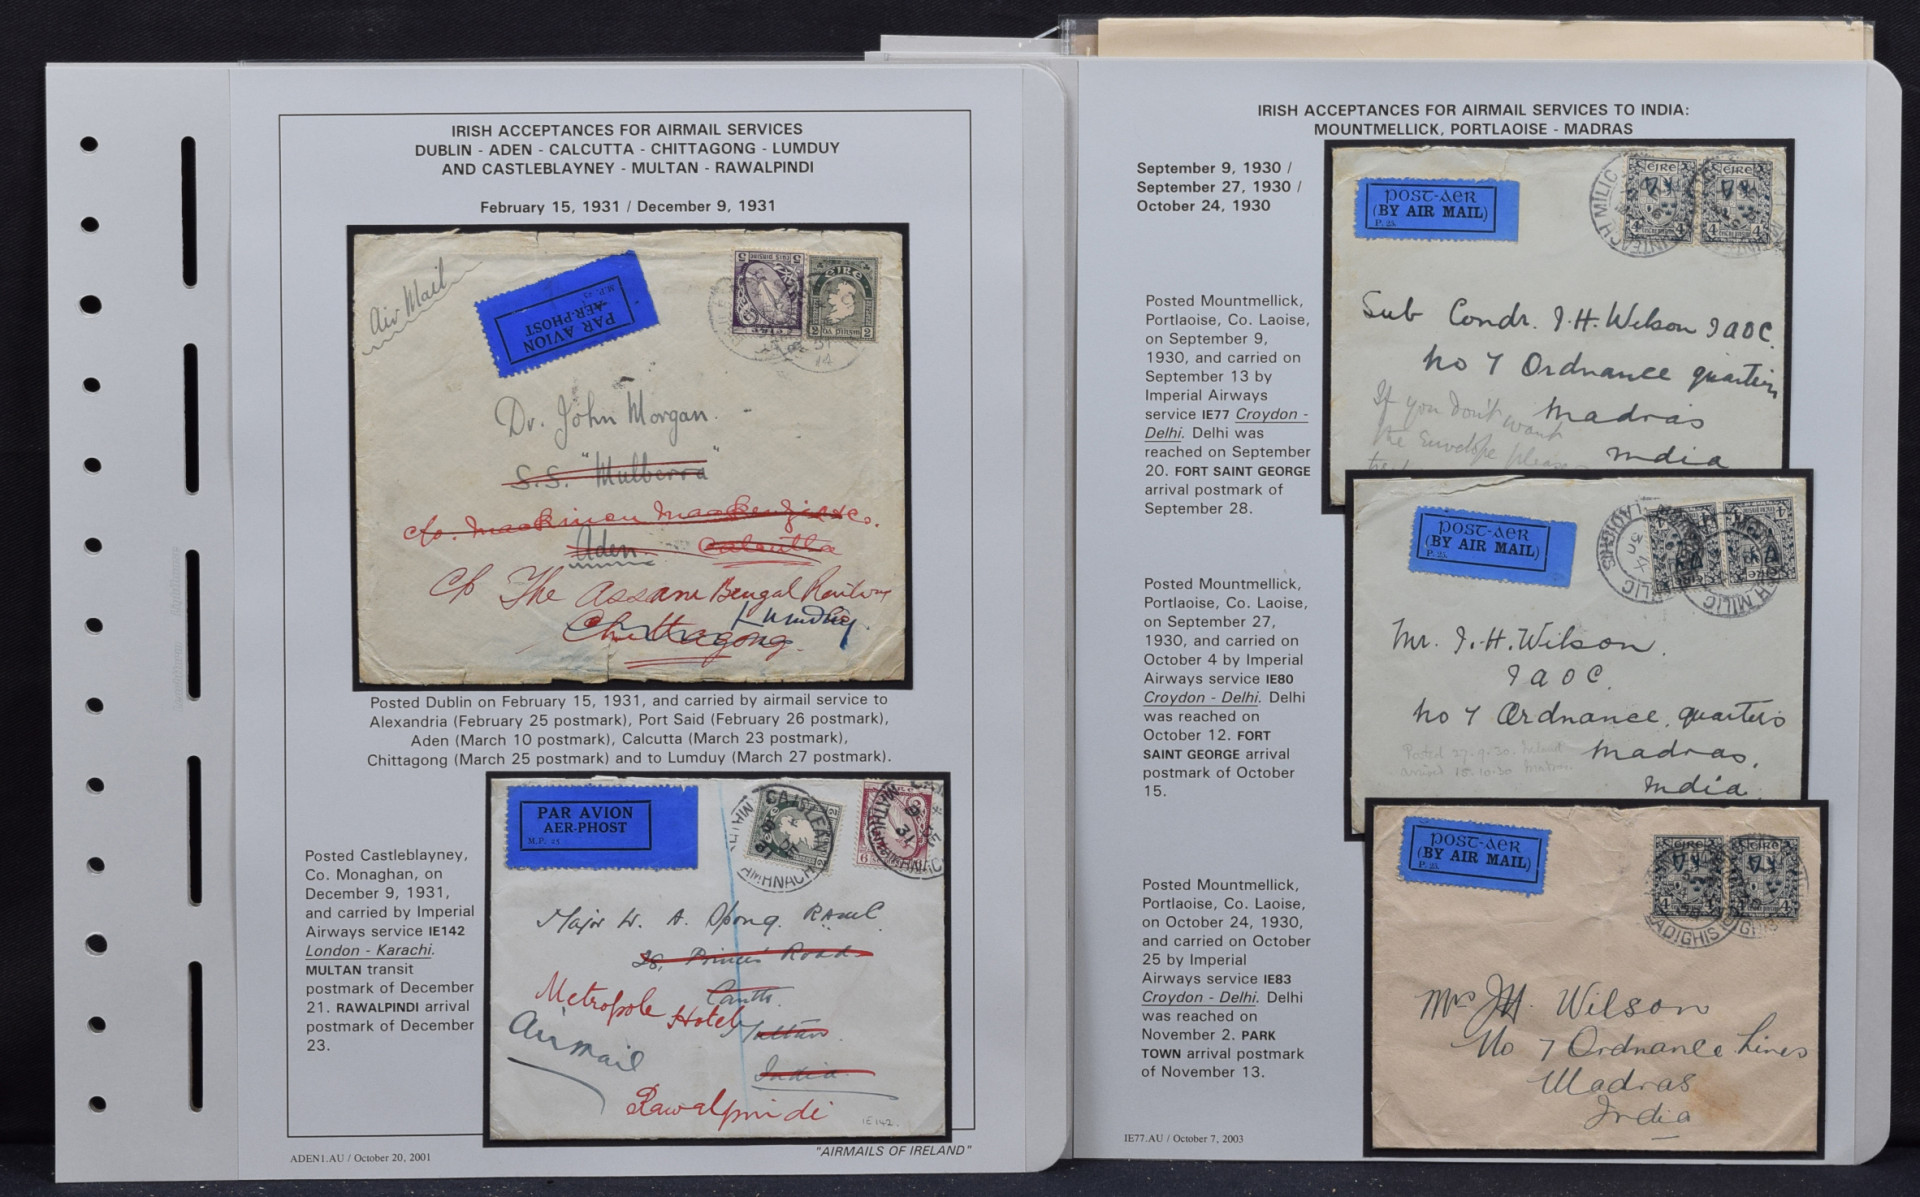 IRISH ACCEPTANCES FOR AIRMAIL SERVICES
DUBLIN - ADEN - CALCUTTA - CHITTAGONG - LUMDUY
AND CASTLEBLAYNEY - MULTAN - RAWALPINDI
February 15, 1931 / December 9, 1931
Air Mail
PAR AVION
AER-PHOST
M.P. 25
ÉIRE
Dr. John Morgan.
S.S. "Mulberra"
c/o. Mackinnon Mackenzie & Co.
Aden Calcutta
c/o The Assam Bengal Railway
Chittagong
Posted Dublin on February 15, 1931, and carried by airmail service to
Alexandria (February 25 postmark), Port Said (February 26 postmark),
Aden (March 10 postmark), Calcutta (March 23 postmark),
Chittagong (March 25 postmark) and to Lumduy (March 27 postmark).
PAR AVION
AER-PHOST
M.P. 25
Posted Castleblayney,
Co. Monaghan, on
December 9, 1931,
and carried by Imperial
Airways service IE142
London - Karachi.
MULTAN transit
postmark of December
21. RAWALPINDI arrival
postmark of December
23.
Major W. A.
Road
Metropole Hotel
Multan
Airmail
India
Rawalpindi
IE142.
ADEN1.AU / October 20, 2001
"AIRMAILS OF IRELAND"
IRISH ACCEPTANCES FOR AIRMAIL SERVICES TO INDIA:
MOUNTMELLICK, PORTLAOISE - MADRAS
September 9, 1930 /
September 27, 1930 /
October 24, 1930
Posted Mountmellick,
Portlaoise, Co. Laoise,
on September 9,
1930, and carried on
September 13 by
Imperial Airways
service IE77 Croydon -
Delhi. Delhi was
reached on September
20. FORT SAINT GEORGE
arrival postmark of
September 28.
post-aer
(BY AIR MAIL)
P. 25.
ÉIRE ÉIRE
Sub Condr. J. H. Wilson IAOC.
No 7 Ordnance quarters
Madras
India
If you don't want
the envelope please
Posted Mountmellick,
Portlaoise, Co. Laoise,
on September 27,
1930, and carried on
October 4 by Imperial
Airways service IE80
Croydon - Delhi. Delhi
was reached on
October 12. FORT
SAINT GEORGE arrival
postmark of October
15.
post-aer
(BY AIR MAIL)
P. 25.
Mr. J. H. Wilson.
IAOC.
No 7 Ordnance quarters
Madras.
India.
Posted 27.9.30
arrived 15.10.30 Madras
Posted Mountmellick,
Portlaoise, Co. Laoise,
on October 24, 1930,
and carried on October
25 by Imperial
Airways service IE83
Croydon - Delhi. Delhi
was reached on
November 2. PARK
TOWN arrival postmark
of November 13.
post-aer
(BY AIR MAIL)
P. 25.
ÉIRE ÉIRE
Mrs J H. Wilson
No 7 Ordnance Lines
Madras
India
IE77.AU / October 7, 2003